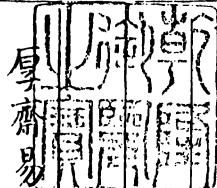 乾隆御覽之寶
厚齋易